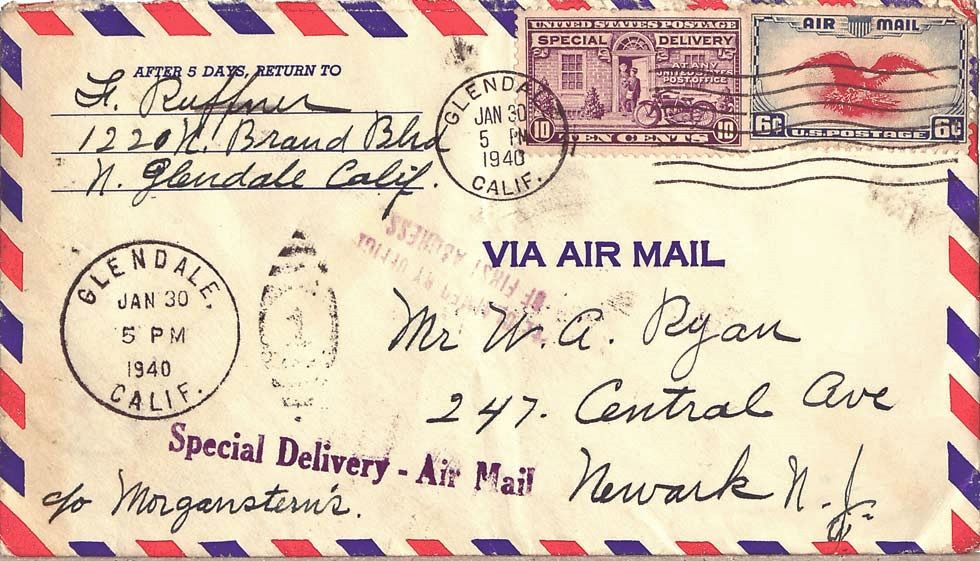 AFTER 5 DAYS, RETURN TO
F. Ruffner
1220 N. Brand Blvd
N. Glendale Calif.
UNITED STATES POSTAGE
SPECIAL DELIVERY
AT ANY
UNITED STATES
POST OFFICE
10 TEN CENTS 10
AIR MAIL
6¢ U.S. POSTAGE 6¢
GLENDALE
JAN 30
5 PM
1940
CALIF.
VIA AIR MAIL
BY OFFICE
OF FIRST ADDRESS
GLENDALE,
JAN 30
5 PM
1940
CALIF.
1
Mr W. A. Ryan
247. Central Ave
Newark N. J.
Special Delivery - Air Mail
c/o Morganstern's.